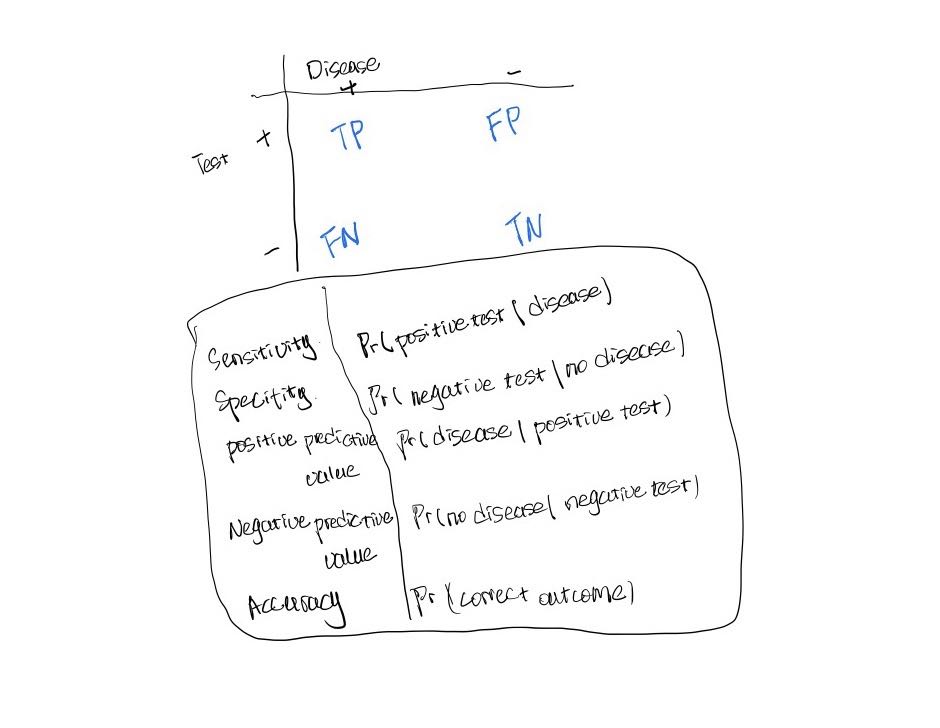 Disease
+ -
Test + TP FP
- FN TN
Sensitivity Pr(positive test | disease)
Specifity Pr(negative test | no disease)
positive predictive value Pr(disease | positive test)
Negative predictive value Pr(no disease | negative test)
Accuracy Pr(correct outcome)